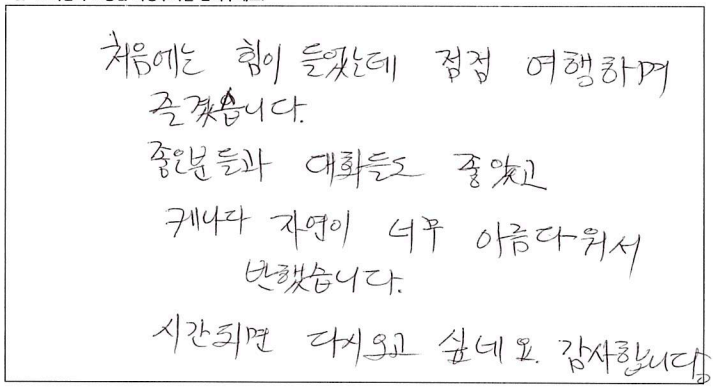 처음에는 힘이 들었는데 점점 여행하며
즐겼습니다.
좋은분들과 대화들도 좋았고
케나다 자연이 너무 아름다워서
반했습니다.
시간되면 다시오고 싶네요. 감사합니다.